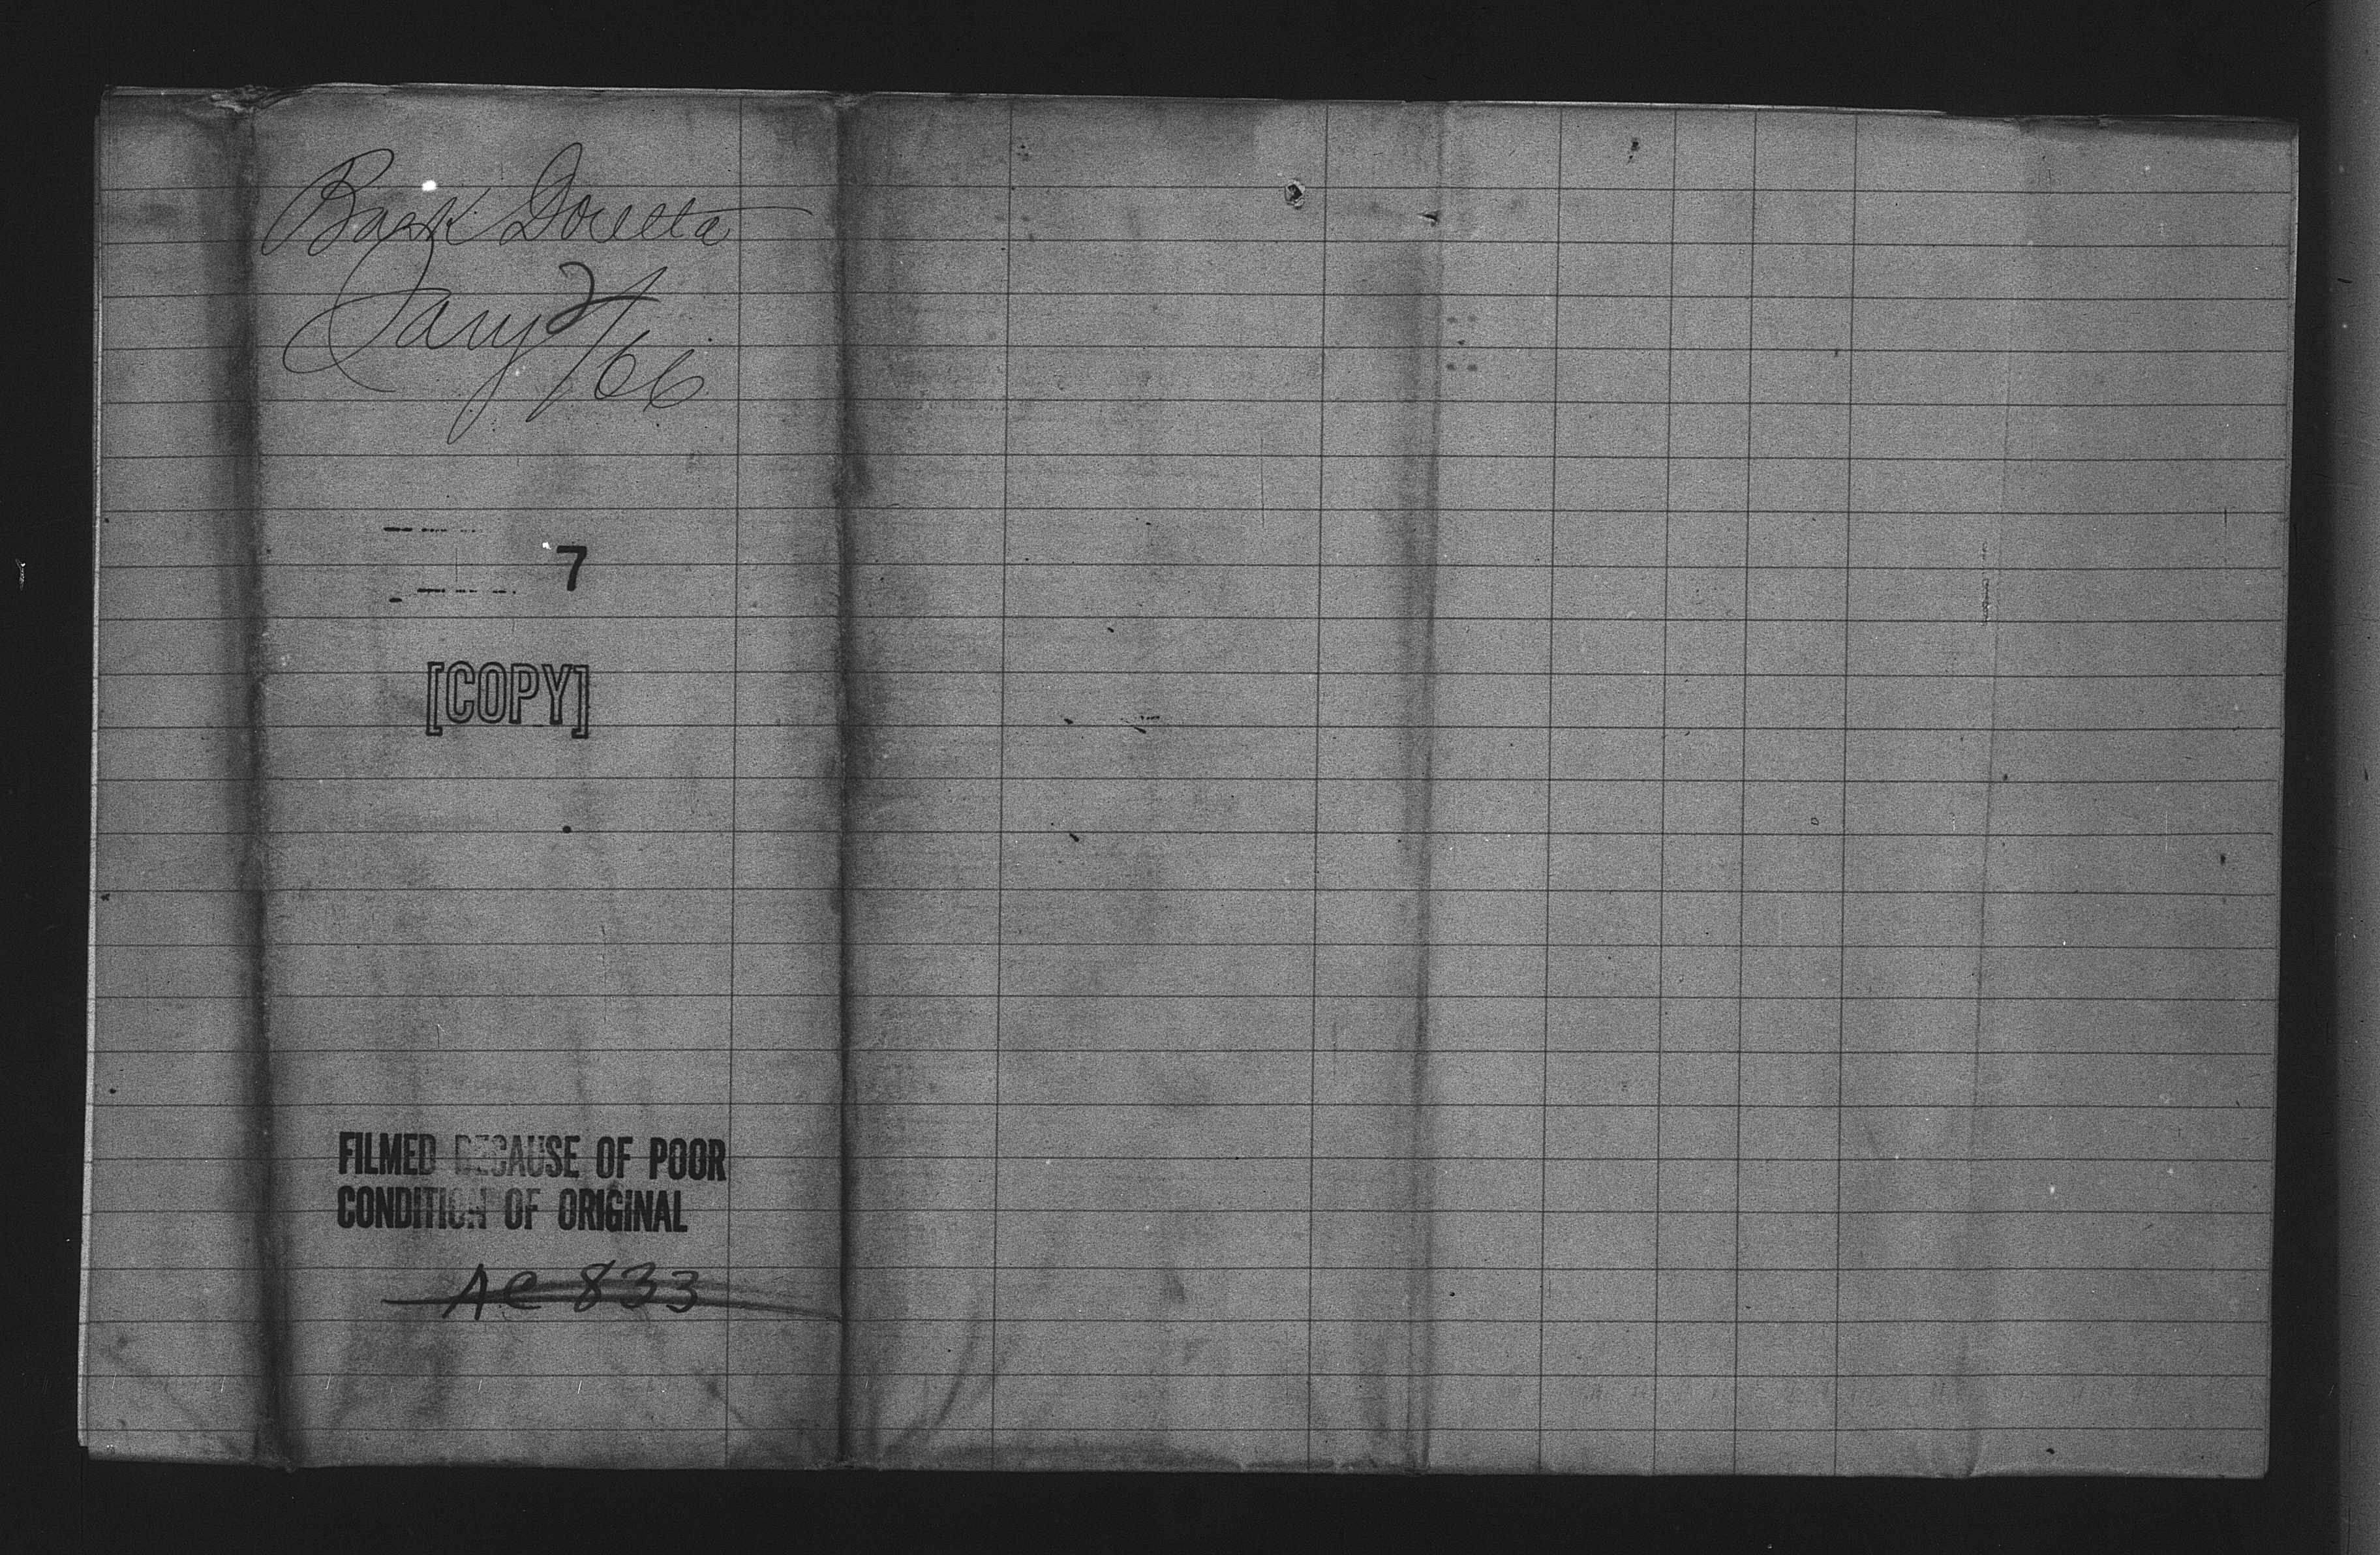 Bark Doretta
Jany 2/66
7
[COPY]
FILMED BECAUSE OF POOR
CONDITION OF ORIGINAL
AC 833